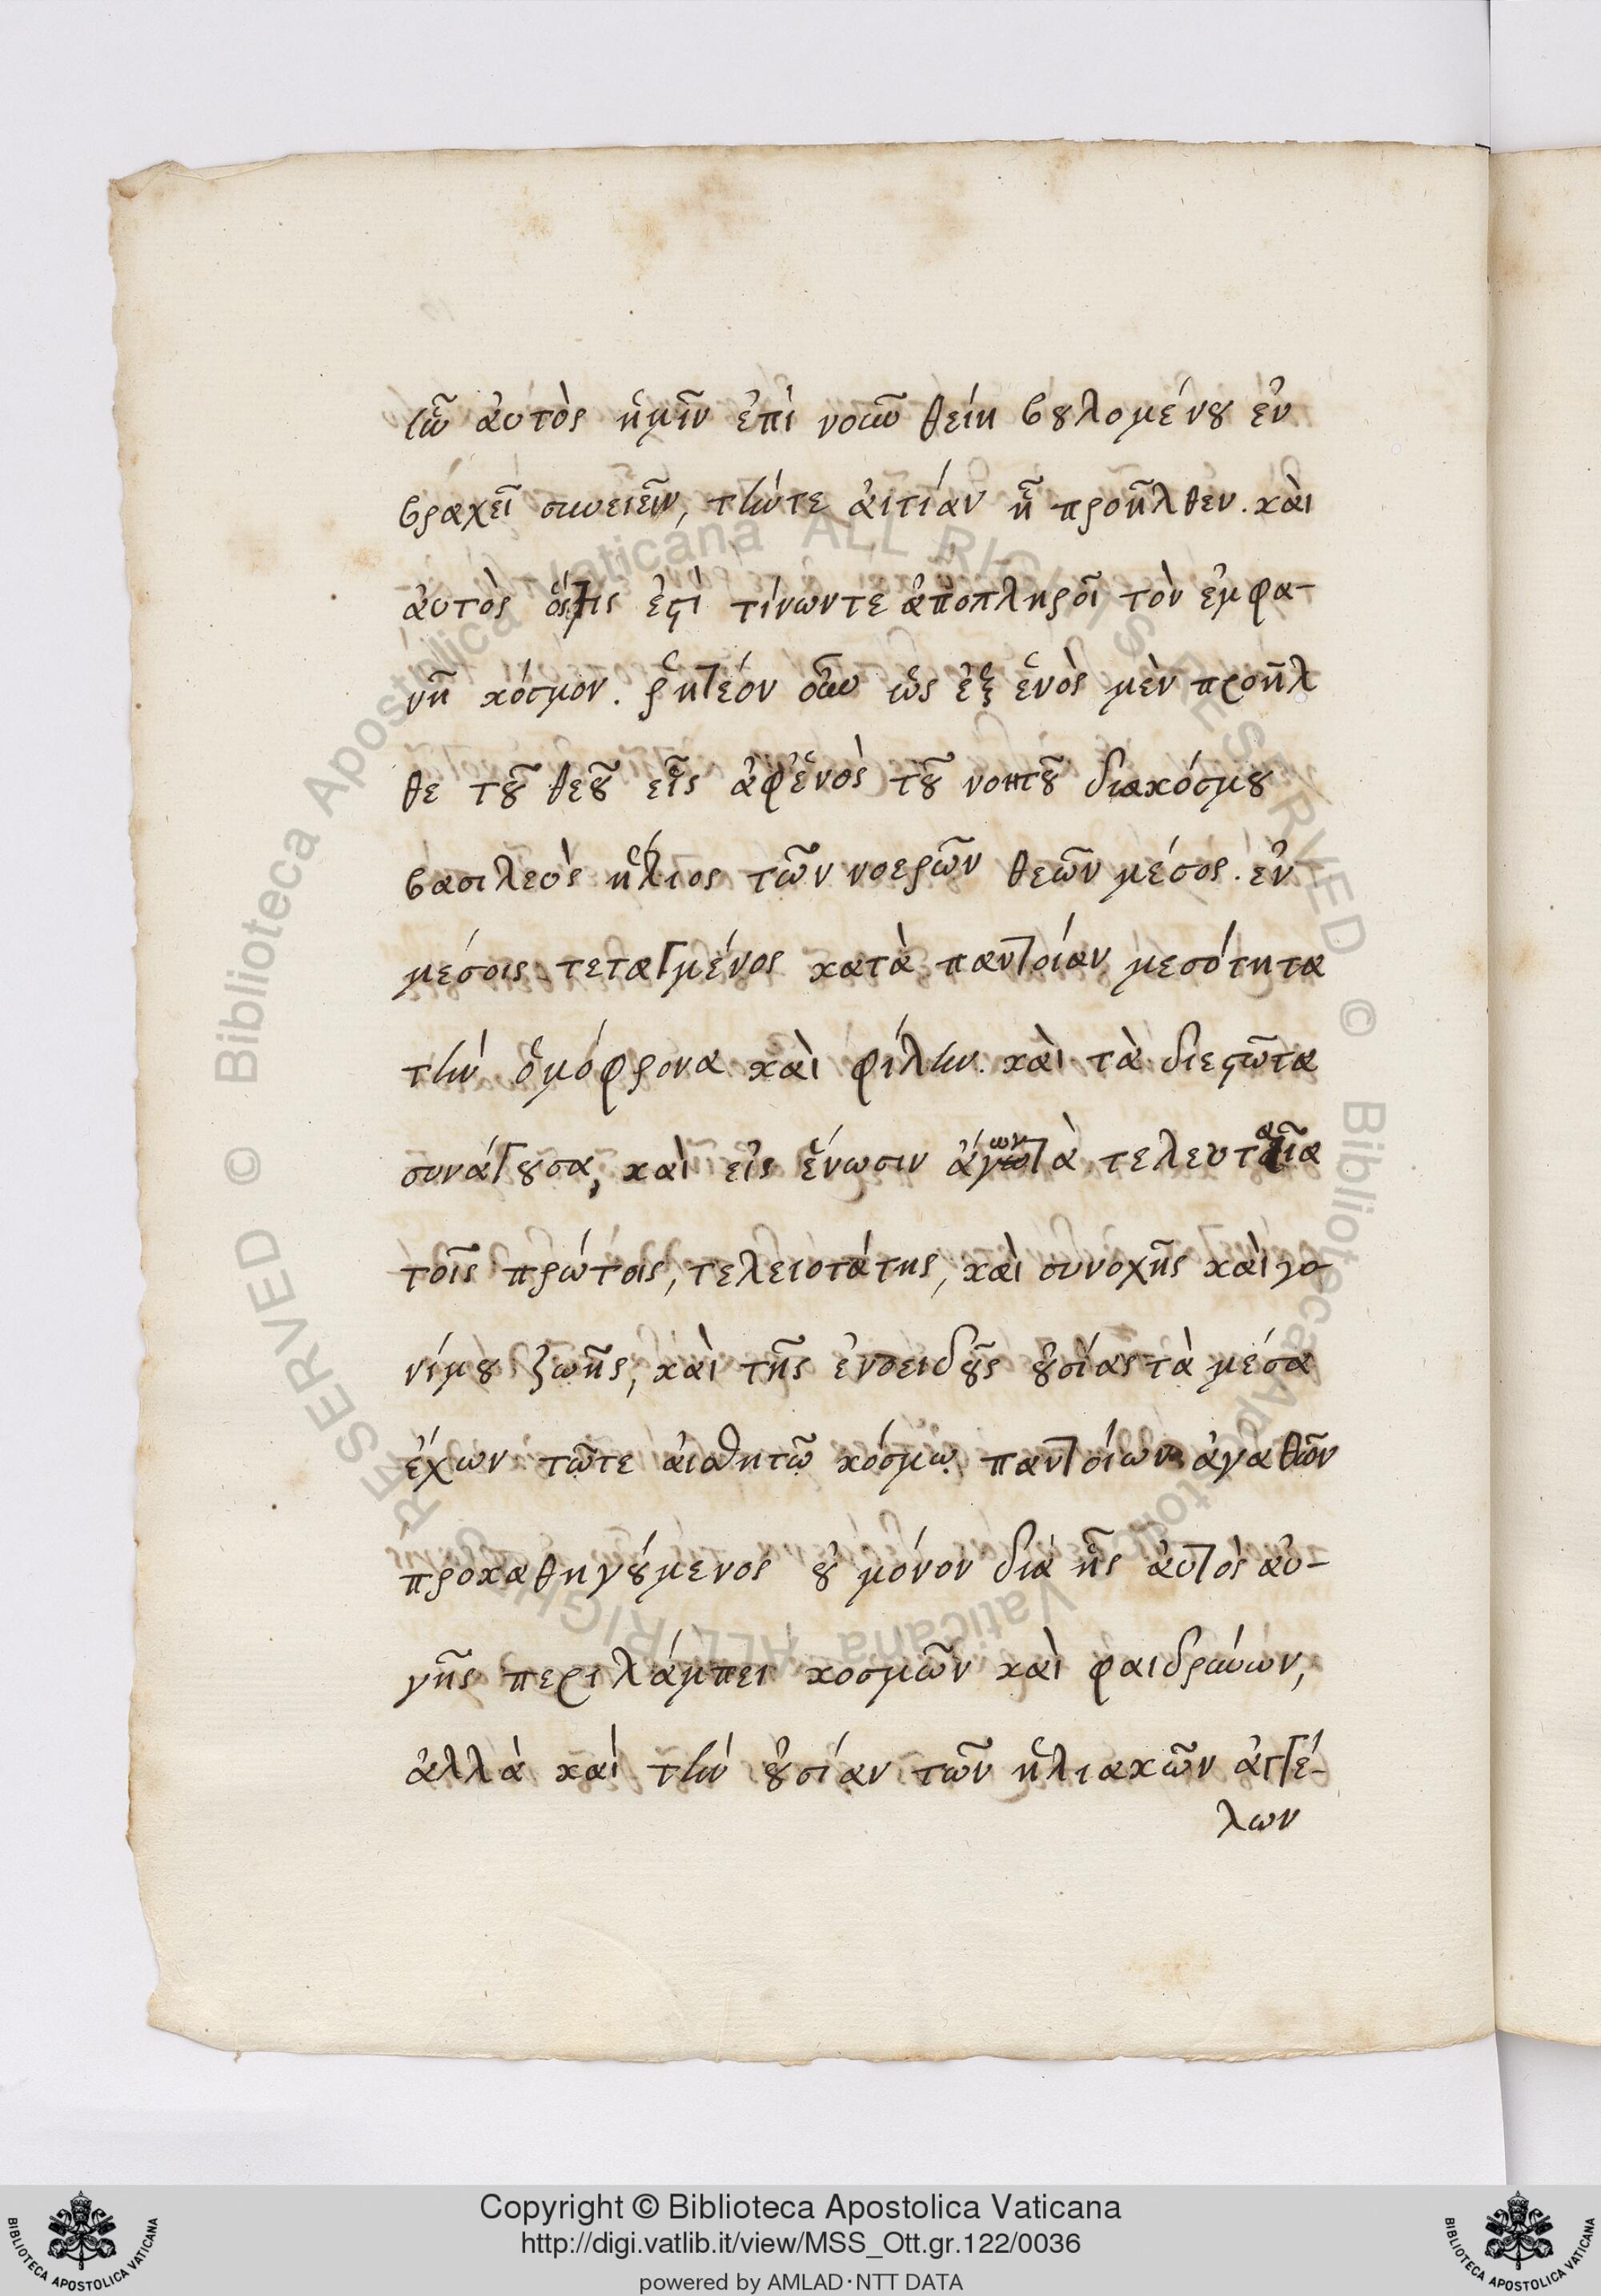 ἰῶ ἀυτὸς ἡμῖν ἐπὶ νοῦν θείη βουλομένου ἐν
βραχεῖ συνειεῖν, τήντε ἀιτίαν ἧ προῆλθεν. κὰι
ἀυτὸς ὅςτις ἐστὶ τίνωντε ἀποπληροῖ τὸν ἐμφα-
νῆ κόσμον. ῥητέον οὖν ὡς ἐξ ἑνὸς μὲν προῆλ
θε τοῦ θεοῦ εἷς ἀφ' ἑνὸς τοῦ νοητοῦ διακόσμου
βασιλεὺς ἥλιος τῶν νοερῶν θεῶν μέσος. ἐν
μέσοις τεταγμένος κατὰ παντοίαν μεσότητα
τὴν ὁμόφρονα κὰι φίλην. κὰι τὰ διεστῶτα
συνάγουσα, κὰι εἰς ἕνωσιν ἄγων τὰ τελευταῖα
τοῖς πρώτοις, τελειοτάτης, κὰι συνοχῆς κὰι γο-
νίμου ζωῆς, κὰι τῆς ἑνοειδοῦς οὐσίας τὰ μέσα
ἔχων τῶτε ἀισθητῶ κόσμω παντοίων ἀγαθῶν
προκαθηγούμενος οὐ μόνον διὰ ἧς ἀυτὸς αὐ-
γῆς περιλάμπει κοσμῶν κὰι φαιδρύνων,
ἀλλὰ κὰι τὴν οὐσίαν τῶν ἡλιακῶν ἀγγέ-
λων
Copyright © Biblioteca Apostolica Vaticana
http://digi.vatlib.it/view/MSS_Ott.gr.122/0036
powered by AMLAD·NTT DATA
BIBLIOTECA APOSTOLICA VATICANA
BIBLIOTECA APOSTOLICA VATICANA
© Biblioteca Apostolica Vaticana ALL RIGHTS RESERVED
© Biblioteca Apostolica Vaticana ALL RIGHTS RESERVED